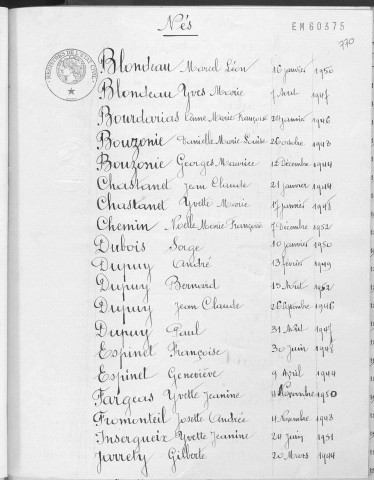 Nés
EM60375
770
Blondeau Marcel Léon 16 janvier 1950
Blondeau Yves Marie 7 Août 1947
Bourdarias Anne Marie Françoise 24 janvier 1946
Bouzonie Danielle Marie Louise 26 octobre 1943
Bouzonie Georges Maurice 12 Décembre 1944
Chastand Jean Claude 21 janvier 1944
Chastand Yvette Marie 17 janvier 1948
Chemin Noëlle Marie Françoise 7 Décembre 1952
Dubois Serge 10 janvier 1950
Dupuy André 13 février 1949
Dupuy Bernard 15 Août 1952
Dupuy Jean Claude 26 Septembre 1946
Dupuy Paul 31 Août 1947
Espinet Françoise 30 juin 1948
Espinet Geneviève 9 Avril 1944
Fargeas Yvette Jeanine 4 Novembre 1950
Fromonteil Josette Andrée 11 Novembre 1943
Inserqueix Yvette Jeanine 24 juin 1951
Jarrety Gilberte 20 Mars 1944